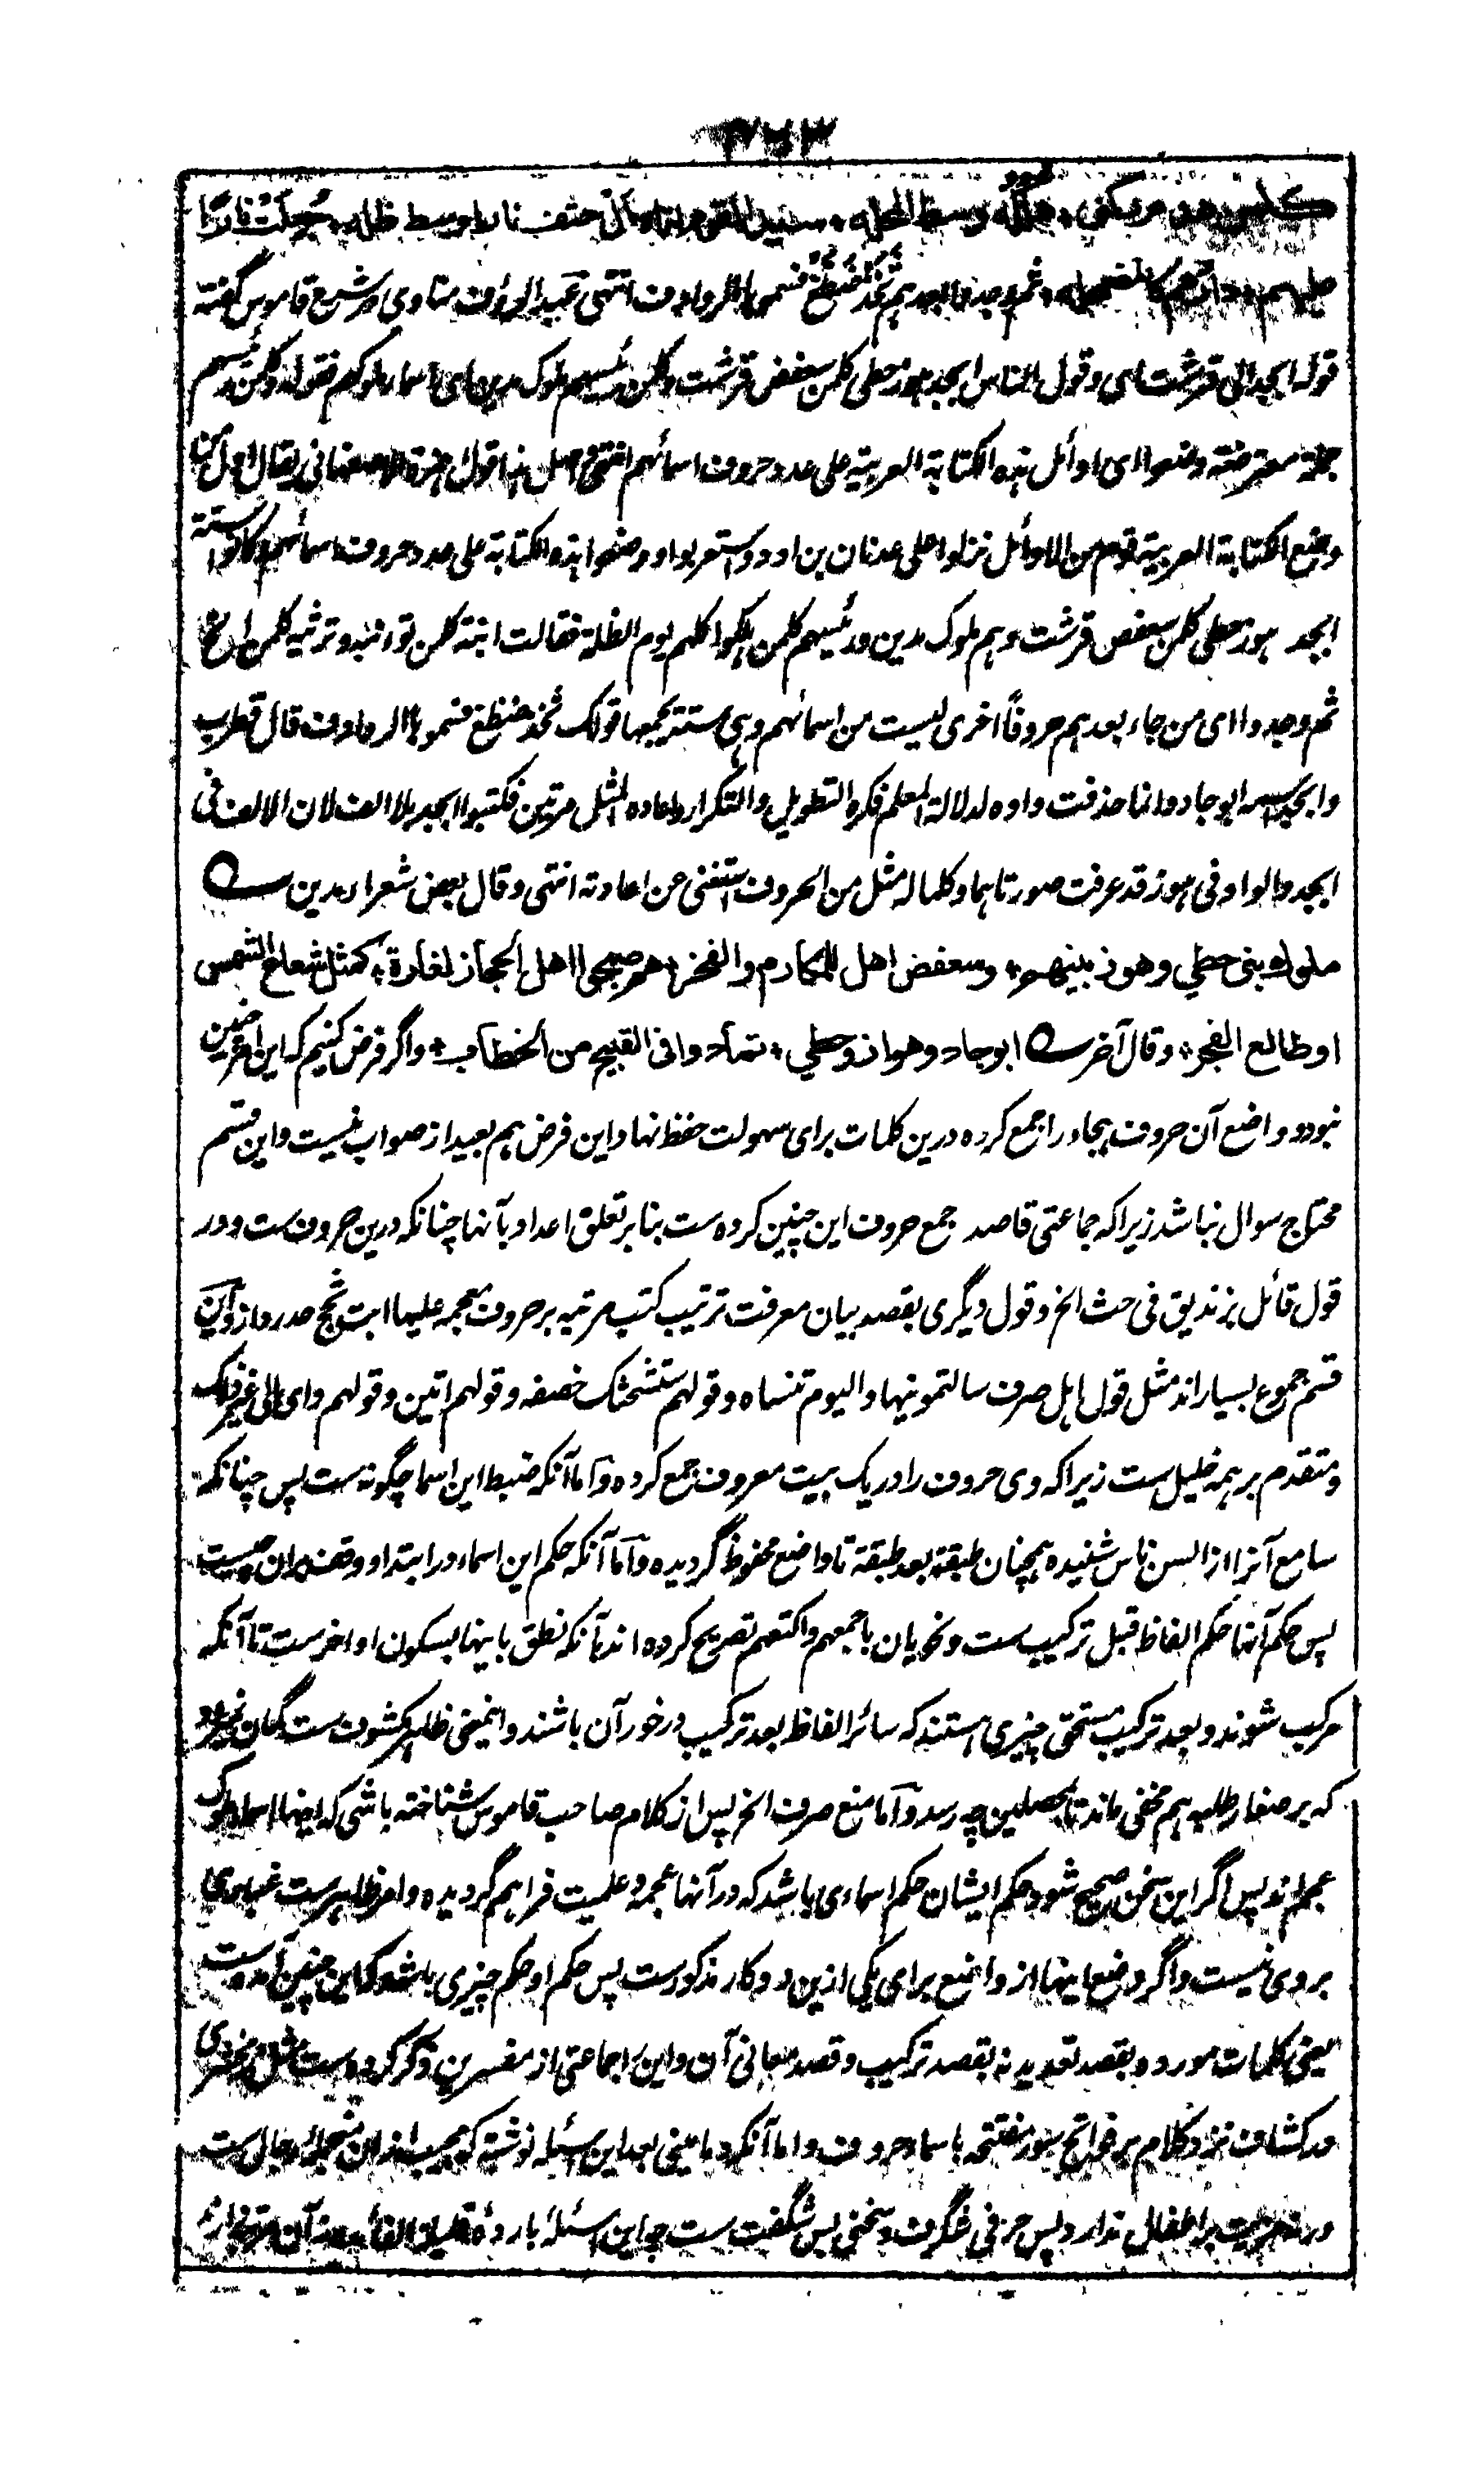 ۲۵۳
كلمن هدم ركنى هلكه وسط المحله سيد القوم اتاه الحتف نارا وسط ظله جعلت نارا
عليهم دارهم كالمضمحله ثم وجدوا بعدهم ثخذ ضظغ فسموها الروادف انتهى عبد الرؤف مناوى در شرح قاموس گفته
قوله ابجد الى قرشت اى وقول الناس ابجد هوز حطى كلمن سعفص قرشت وكلمن رئيسهم ملوك مدين اى اسماء ملوكهم فقوله وكلمن رئيسهم
جملة معترضة وضعوا اى اوائل هذه الكتابة العربية على عدد حروف اسمائهم انتهى واصل هذا قول حمزة الاصفهانى يقال اول من
وضع الكتابة العربية قوم من الاوائل نزلوا على عدنان بن ادد واستعربوا ووضعوا هذه الكتابة على عدد حروف اسمائهم وكانوا ستة
ابجد هوز حطى كلمن سعفص قرشت وهم ملوك مدين ورئيسهم كلمن هلكوا كلهم يوم الظلة فقالت ابنة كلمن تؤانبه وترثيه كلمن الخ
ثم وجدوا اى من جاء بعدهم حروفاً اخرى ليست من اسمائهم وهى ستة يجمعها قولك ثخذ ضظغ فسموها الروادف قال قطرب
وابجد اسمه ابو جاد وانما حذفت واوه لدلالة المعلم فكره التطويل والتكرار واعاده المثل مرتين فكتبوا ابجد بلا الف لان الالف فى
ابجد والواو فى هوز قد عرفت صورتاهما وكلما له مثل من الحروف استغنى عن اعادته انتهى وقال بعض شعراء مدين
ملوك بنى حطي وهوز بينهم وسعفض اهل للمكارم والفخر هم صبحوا اهل الحجاز لغارة كمثل شعاع الشمس
او طالع الفجر وقال آخر ابوجاد وهواز وحطي تمادوا فى القبيح من الخطاب واگر فرض كنيم كه اين امر چنين
نبود و واضع آن حروف هجاء را جمع كرده درين كلمات براى سهولت حفظ نهاد اين فرض هم بعيد از صواب نيست واين قسم
محتاج سوال نباشد زيرا كه جماعتى قاصد جمع حروف اين چنين كرده ست بنا بر تعلق اعداد بآنها چنانكه درين حروف ست ودر
قول قائل بزنديق فى حث الخ وقول ديگرى بقصد بيان معرفت ترتيب كتب مرتبه بر حروف معجمه عليها ابت ثج خدر واز اين
قسم جموع بسيار اند مثل قول اهل صرف سالتمونيها واليوم تنساه وقولهم ستشحثك خصفه وقولهم اتين وقولهم واى الى غير ذلك
ومتقدم بر همه خليل ست زيرا كه وى حروف را در يك بيت معروف جمع كرده واما آنكه ضبط اين اسما چگونه ست پس چنانكه
سامع آنرا از السن ناس شنيده همچنان طبقة بعد طبقة تا واضع محفوظ گرديده واما آنكه حكم اين اسماء در ابتدا و وقف بران چيست
پس حكم آنها حكم الفاظ قبل تركيب ست ونحويان باجمعهم واكتعهم تصريح كرده اند بآنكه نطق باينها بسكون اواخر ست تا آنكه
مركب شوند وبعد تركيب مستحق چيزى هستند كه سائر الفاظ بعد تركيب در خور آن باشند واينمعنى ظاهر مكشوف ست گمان نميرود
كه بر صغار طلبه هم مخفى ماند تا بمحصلين چه رسد واما منع صرف الخ پس از كلام صاحب قاموس شناخته باشى كه اينها اسماء ملوك
عجم اند پس اگر اين سخن صحيح شود حكم ايشان حكم اسماءى باشد كه در آنها عجمه وعلميت فراهم گرديده وامر ظاهر ست غبارى
بر وى نيست واگر وضع اينها از واضع براى يكى ازين دو كار مذكور ست پس حكم او حكم چيزى باشد كه اين چنين آمده ست
يعنى كلمات مورده بقصد تعديد نه بقصد تركيب وقصد معانى آن واين را جماعتى از مفسرين ذكر كرده ست مثل زمخشرى
در كشاف نزد كلام بر فواتح سور مفتتحه باسماء حروف واما آنكه دمامينى بعد اين اسئله نوشته كه مجيب ازان منجمله رجال ست
ورنه مزيت بر اطفال ندارد پس حرفى شگرف وسخنى بس شگفت ست چه اين اسئلهٔ باردهٔ قليلة الفائده